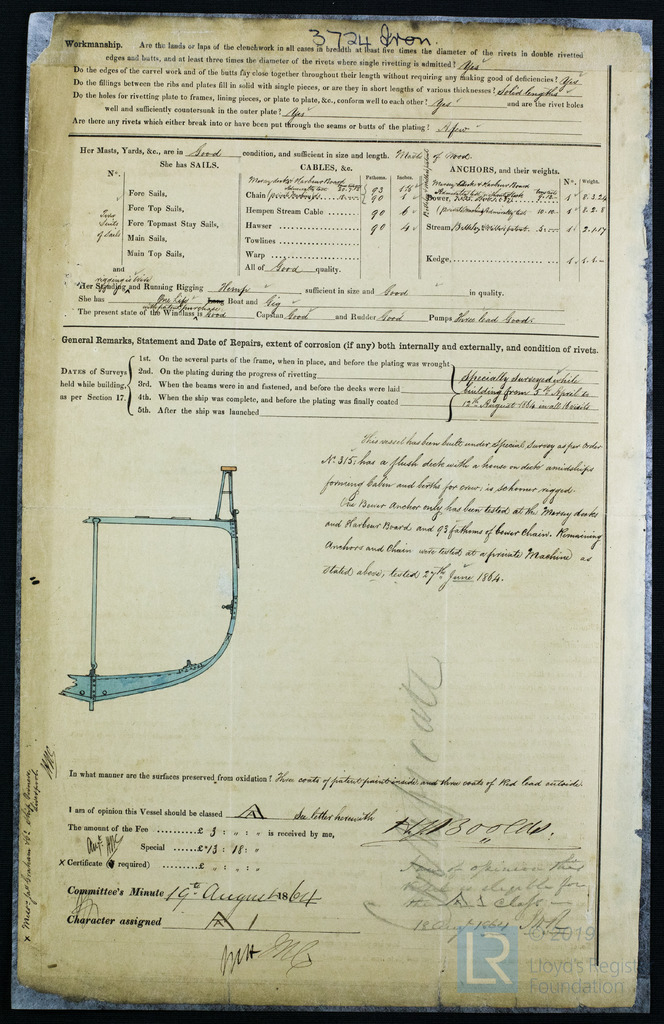 3724 Iron.
Workmanship. Are the lands or laps of the clenchwork in all cases in breadth at least five times the diameter of the rivets in double rivetted
edges and butts, and at least three times the diameter of the rivets where single rivetting is admitted? Yes
Do the edges of the carvel work and of the butts fay close together throughout their length without requiring any making good of deficiencies? Yes
Do the fillings between the ribs and plates fill in solid with single pieces, or are they in short lengths of various thicknesses? Solid lengths
Do the holes for rivetting plate to frames, lining pieces, or plate to plate, &c., conform well to each other? Yes and are the rivet holes
well and sufficiently countersunk in the outer plate? Yes
Are there any rivets which either break into or have been put through the seams or butts of the plating? A few
Her Masts, Yards, &c., are in Good condition, and sufficient in size and length. Masts of Wood.
She has SAILS. CABLES, &c. Fathoms. Inches. ANCHORS, and their weights. No. Weight.
No.
Fore Sails,
Fore Top Sails,
Fore Topmast Stay Sails,
Main Sails,
Main Top Sails,
and
Two Suits of Sails
Mersey docks & Harbour Board 93
Chain 90
Hempen Stream Cable 90 6
Hawser 90 4
Towlines
Warp
All of Good quality.
Bower, 1 8.3.24
1 8.2.8
Stream, 1 2.1.17
Kedge, 1
Her Standing and Running Rigging Hemp sufficient in size and Good in quality.
rigging is wire
She has One Life Long Boat and Gig
The present state of the Windlass is Good Capstan Good and Rudder Good Pumps Three lead Good.
with patent purchase
General Remarks, Statement and Date of Repairs, extent of corrosion (if any) both internally and externally, and condition of rivets.
DATES of Surveys held while building, as per Section 17.
1st. On the several parts of the frame, when in place, and before the plating was wrought
2nd. On the plating during the progress of rivetting
3rd. When the beams were in and fastened, and before the decks were laid
4th. When the ship was complete, and before the plating was finally coated
5th. After the ship was launched
Specially surveyed while
building from 5th April to
12th August 1864 in all 18 visits
This vessel has been built under Special Survey as per Order
No. 315; has a flush deck with a house on deck amidships
forming Cabin and births for crew; is schooner rigged.
One Bower Anchor only has been tested at the Mersey docks
and Harbour Board and 93 fathoms of bower Chain. Remaining
Anchors and Chain were tested at a private Machine as
stated above, tested 27th June 1864.
In what manner are the surfaces preserved from oxidation? Three coats of patent paint inside and three coats of Red lead outside.
I am of opinion this Vessel should be classed A See letter herewith
The amount of the Fee £ 3 : „ : „ is received by me,
Special £ 13 : 18 : „
x Certificate (if required) £ „ : „ : „
Committee's Minute 19th August 1864
Character assigned A 1
I am of opinion this
vessel is eligible for
the A 1 Class
18 Aug 1864
LR
© 2019
Lloyd's Register
Foundation